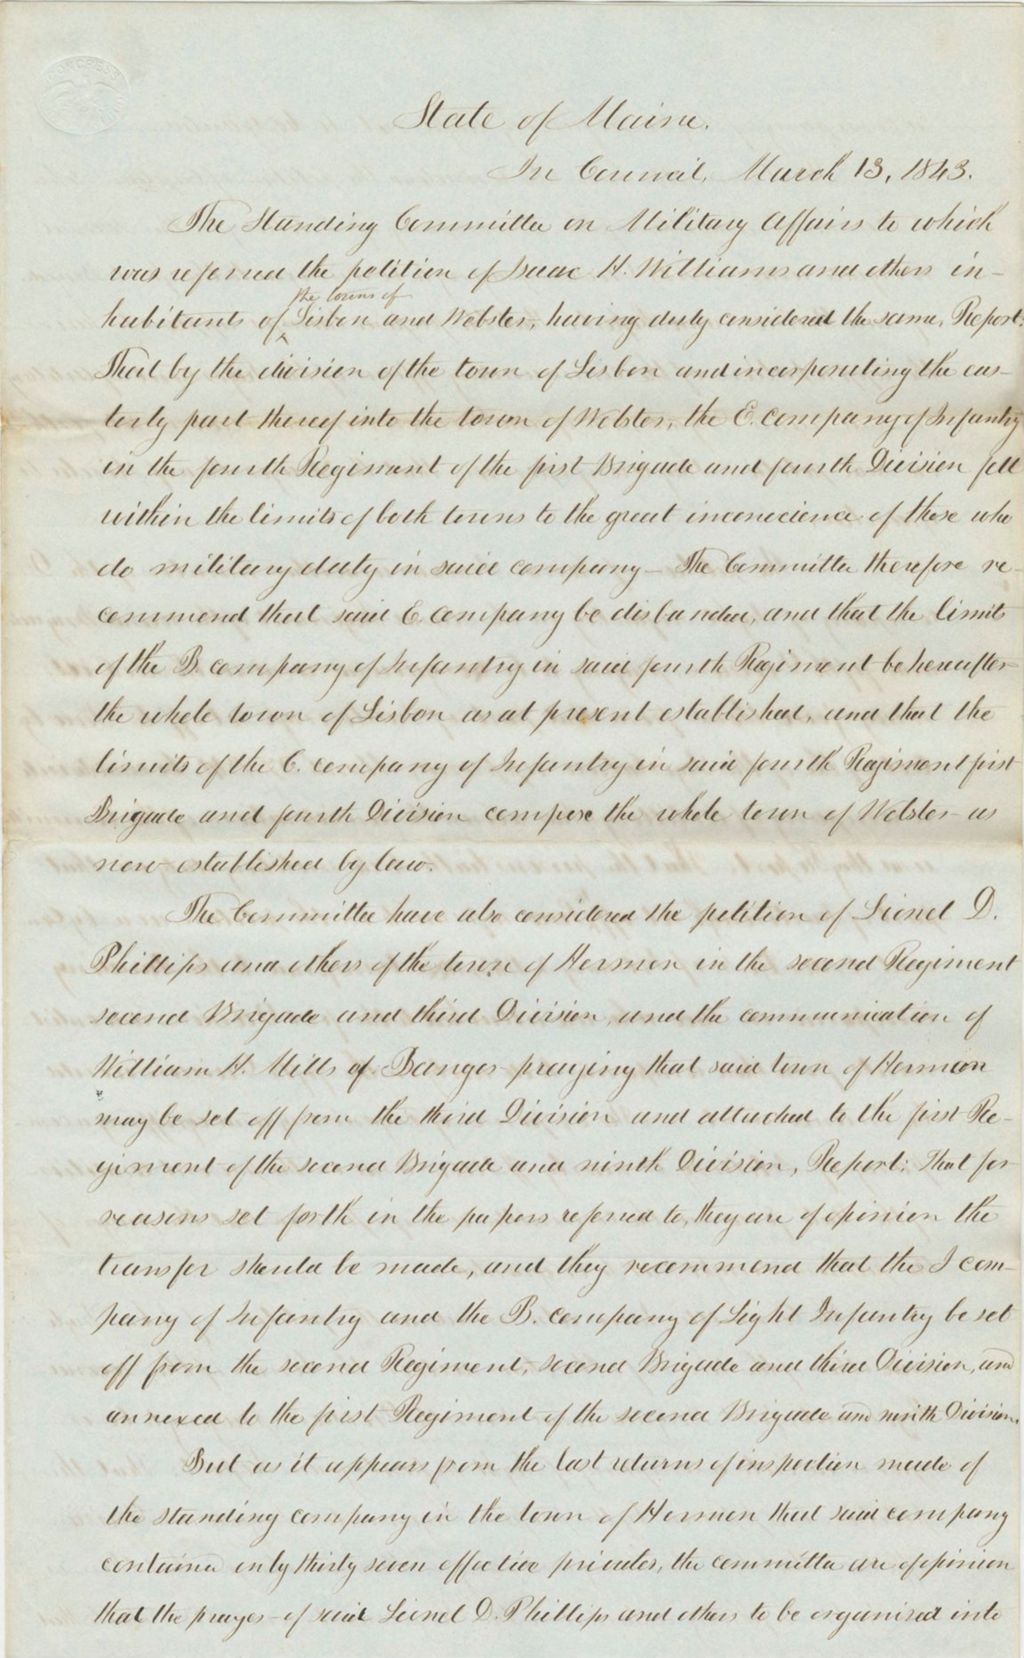 CONGRESS
State of Maine.
In Council, March 13, 1843.
The Standing Committee on Military Affairs to which
was referred the petition of Isaac H. Williams and others in-
the towns of
habitants of Lisbon and Webster, having duly considered the same, Report:
That by the division of the town of Lisbon and incorporating the eas-
terly part thereof into the town of Webster, the E. company of Infantry
in the fourth Regiment of the first Brigade and fourth Division fell
within the limits of both towns to the great inconvenience of those who
do military duty in said company – The Committee therefore re-
commend that said E company be disbanded, and that the limits
of the B. company of Infantry in said fourth Regiment be hereafter
the whole town of Lisbon as at present established, and that the
limits of the C. company of Infantry in said fourth Regiment first
Brigade and fourth Division compose the whole town of Webster as
now established by law.
The Committee have also considered the petition of Lionel D.
Phillips and others of the town of Hermon in the second Regiment
second Brigade and third Division, and the communication of
William H. Mills of Bangor praying that said town of Hermon
may be set off from the third Division and attached to the first Re-
giment of the second Brigade and ninth Division, Report: That for
reasons set forth in the papers referred to, they are of opinion the
transfer should be made, and they recommend that the I com-
pany of Infantry and the B. company of Light Infantry be set
off from the second Regiment, second Brigade and third Division, and
annexed to the first Regiment of the second Brigade and ninth Division.
But as it appears from the last returns of inspection made of
the standing company in the town of Hermon that said company
contained only thirty seven effective privates, the committee are of opinion
that the prayer of said Lionel D. Phillips and others to be organised into